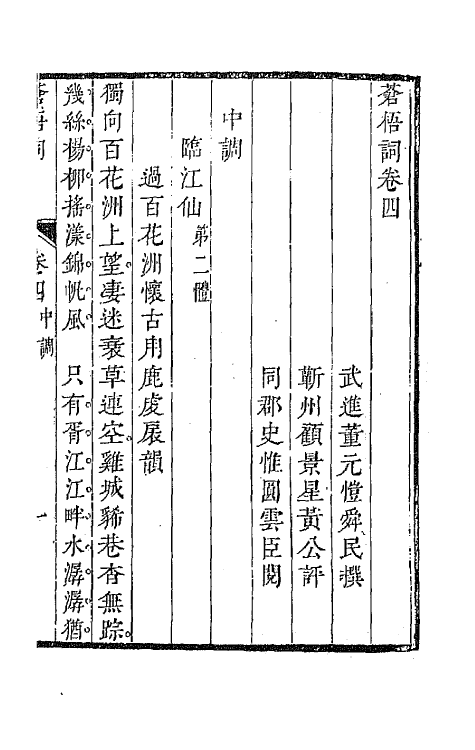 蒼梧詞卷四
武進董元愷舜民撰
蘄州顧景星黃公評
同郡史惟圓雲臣閱
中調
臨江仙第二體
過百花洲懷古用鹿虔扆韻
獨向百花洲上望。淒迷衰草連空。雞城豨巷杳無踪。
幾絲楊柳。搖漾錦帆風。　只有胥江江畔水。潺潺猶
蒼梧詞　卷四中調　一